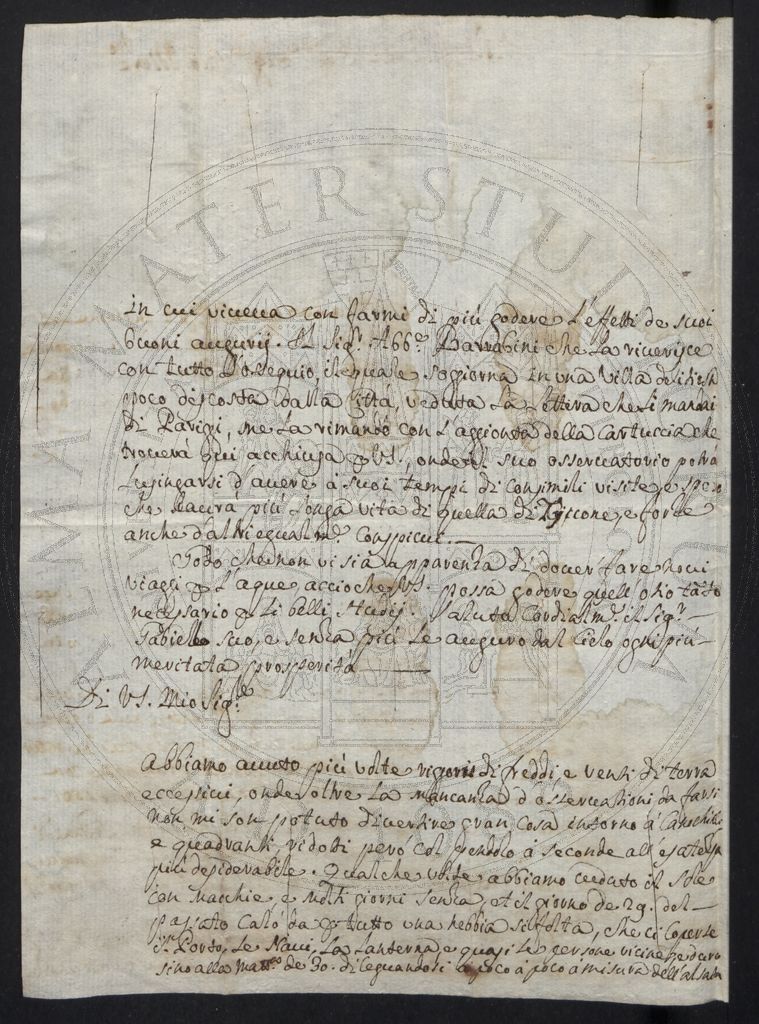 ALMA MATER STUDIORUM
in cui viveva con farmi di più godere l'effetti de suoi
buoni augurij. Il Sig.r Abb.e Barrabini che La riverisce
con tutto l'ossequio, il quale soggiorna in una villa
poco discosta dalla Città, veduta La Lettera che Li mandai
di Parigi, me La rimandò con L'aggionta della Cartuccia che
troverà qui acchiusa p VS., onde il suo osservatorio potrà
Lusingarsi d'avere à suoi tempi di consimili visite, e spero
che haurà più longa vita di quella di Ticcone, e forse
anche d'altri egualm.e conspicui.
Godo che non vi sia apparenza di dover fare novi
viaggi p L'aque accioche VS. possa godere quell'otio tanto
necessario p Li belli studij. Saluta Cordialm.e il Sig.r
Gabiello suo, e senza più Le auguro dal Cielo ogni più
meritata prosperità
Di VS. Mio Sig.re
Abbiamo avuto più volte rigori di freddi e venti di terra
eccessivi, onde oltre La mancanza d'osservationi da farsi
non mi son potuto divertire gran cosa intorno à Canochiali
e quadranti, ridotti però col pendolo à secondi all'esatezza
più desiderabile. Qualche volte abbiamo veduto il Sole
con macchie, e molti giorni senza, et il giorno de 29. del
passato calò da p tutto una nebbia sì folta, che ci coperse
il Porto, Le Navi, La Lanterna e quasi le persone vicine
sino alla matt.a de 30. dileguandosi à poco à poco à misura dell'